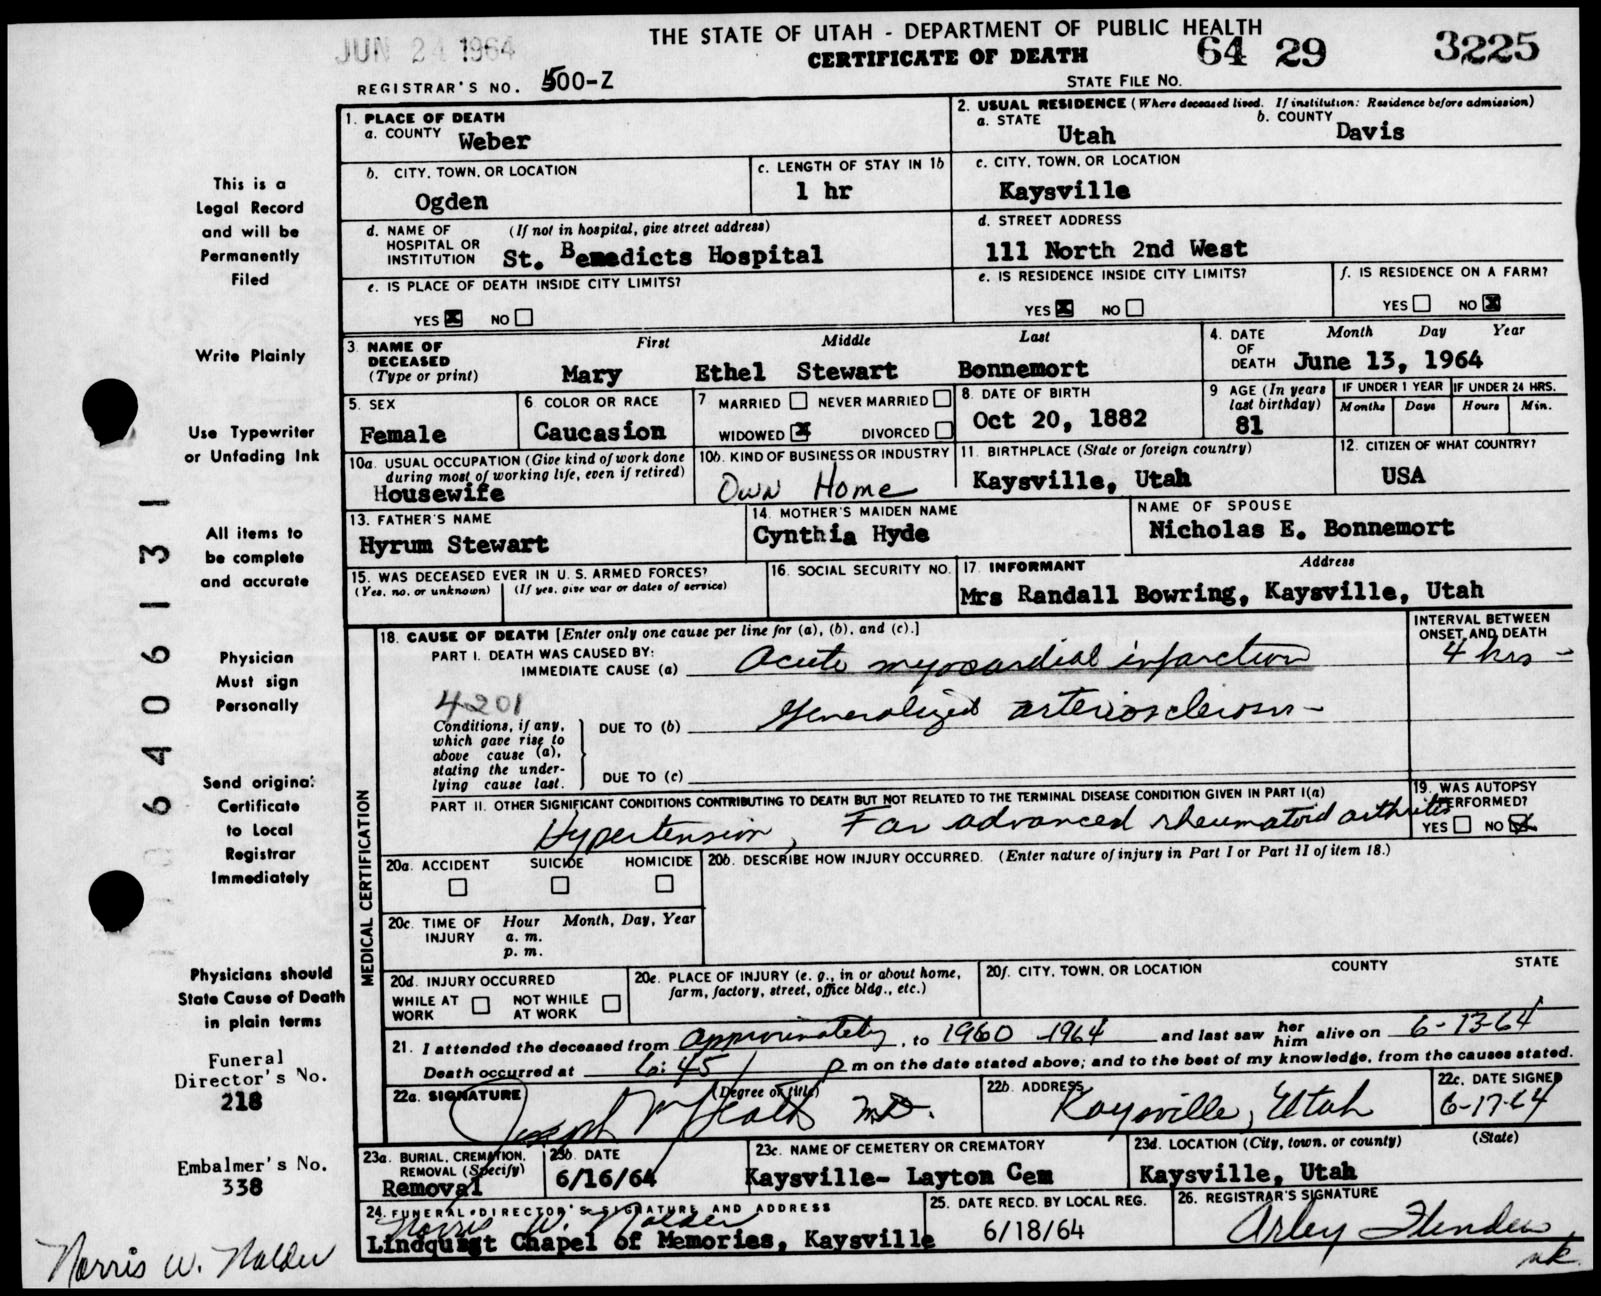 JUN 24 1964
THE STATE OF UTAH - DEPARTMENT OF PUBLIC HEALTH
CERTIFICATE OF DEATH
64 29 3225
REGISTRAR'S NO. 500-Z
STATE FILE NO.
1. PLACE OF DEATH
a. COUNTY Weber
2. USUAL RESIDENCE (Where deceased lived. If institution: Residence before admission)
a. STATE Utah
b. COUNTY Davis
b. CITY, TOWN, OR LOCATION
Ogden
c. LENGTH OF STAY IN 1b
1 hr
c. CITY, TOWN, OR LOCATION
Kaysville
d. NAME OF HOSPITAL OR INSTITUTION (If not in hospital, give street address)
St. Benedicts Hospital
d. STREET ADDRESS
111 North 2nd West
e. IS PLACE OF DEATH INSIDE CITY LIMITS?
YES X NO
e. IS RESIDENCE INSIDE CITY LIMITS?
YES X NO
f. IS RESIDENCE ON A FARM?
YES NO X
3. NAME OF DECEASED (Type or print)
First Middle Last
Mary Ethel Stewart Bonnemort
4. DATE OF DEATH
Month Day Year
June 13, 1964
5. SEX
Female
6. COLOR OR RACE
Caucasion
7 MARRIED NEVER MARRIED
WIDOWED X DIVORCED
8. DATE OF BIRTH
Oct 20, 1882
9 AGE (In years last birthday)
81
IF UNDER 1 YEAR
Months Days
IF UNDER 24 HRS.
Hours Min.
10a. USUAL OCCUPATION (Give kind of work done during most of working life, even if retired)
Housewife
10b. KIND OF BUSINESS OR INDUSTRY
Own Home
11. BIRTHPLACE (State or foreign country)
Kaysville, Utah
12. CITIZEN OF WHAT COUNTRY?
USA
13. FATHER'S NAME
Hyrum Stewart
14. MOTHER'S MAIDEN NAME
Cynthia Hyde
NAME OF SPOUSE
Nicholas E. Bonnemort
15. WAS DECEASED EVER IN U. S. ARMED FORCES?
(Yes, no, or unknown) (If yes, give war or dates of service)
16. SOCIAL SECURITY NO.
17. INFORMANT Address
Mrs Randall Bowring, Kaysville, Utah
MEDICAL CERTIFICATION
18. CAUSE OF DEATH [Enter only one cause per line for (a), (b), and (c).]
INTERVAL BETWEEN ONSET AND DEATH
PART I. DEATH WAS CAUSED BY:
IMMEDIATE CAUSE (a) Acute myocardial infarction 4 hrs -
4201
Conditions, if any, which gave rise to above cause (a), stating the underlying cause last.
DUE TO (b) Generalized arteriosclerosis -
DUE TO (c)
PART II. OTHER SIGNIFICANT CONDITIONS CONTRIBUTING TO DEATH BUT NOT RELATED TO THE TERMINAL DISEASE CONDITION GIVEN IN PART I(a)
Hypertension, Far advanced rheumatoid arthritis
19. WAS AUTOPSY PERFORMED?
YES NO X
20a. ACCIDENT SUICIDE HOMICIDE
20b. DESCRIBE HOW INJURY OCCURRED. (Enter nature of injury in Part I or Part II of item 18.)
20c. TIME OF INJURY
Hour Month, Day, Year
a. m.
p. m.
20d. INJURY OCCURRED
WHILE AT WORK NOT WHILE AT WORK
20e. PLACE OF INJURY (e. g., in or about home, farm, factory, street, office bldg., etc.)
20f. CITY, TOWN, OR LOCATION COUNTY STATE
21. I attended the deceased from approximately, to 1960 - 1964 and last saw her him alive on 6-13-64
Death occurred at 6:45 p m on the date stated above; and to the best of my knowledge, from the causes stated.
22a. SIGNATURE (Degree or title)
Joseph M Heath M.D.
22b. ADDRESS
Kaysville, Utah
22c. DATE SIGNED
6-17-64
23a. BURIAL, CREMATION, REMOVAL (Specify)
Removal
23b. DATE
6/16/64
23c. NAME OF CEMETERY OR CREMATORY
Kaysville- Layton Cem
23d. LOCATION (City, town, or county) (State)
Kaysville, Utah
24. FUNERAL DIRECTOR'S SIGNATURE AND ADDRESS
Norris W. Nalder
Lindquist Chapel of Memories, Kaysville
25. DATE RECD. BY LOCAL REG.
6/18/64
26. REGISTRAR'S SIGNATURE
Arley Flinders
nk
This is a
Legal Record
and will be
Permanently
Filed
Write Plainly
Use Typewriter
or Unfading Ink
All items to
be complete
and accurate
Physician
Must sign
Personally
Send original
Certificate
to Local
Registrar
Immediately
Physicians should
State Cause of Death
in plain terms
Funeral
Director's No.
218
Embalmer's No.
338
Norris W. Nalder
64 06 131